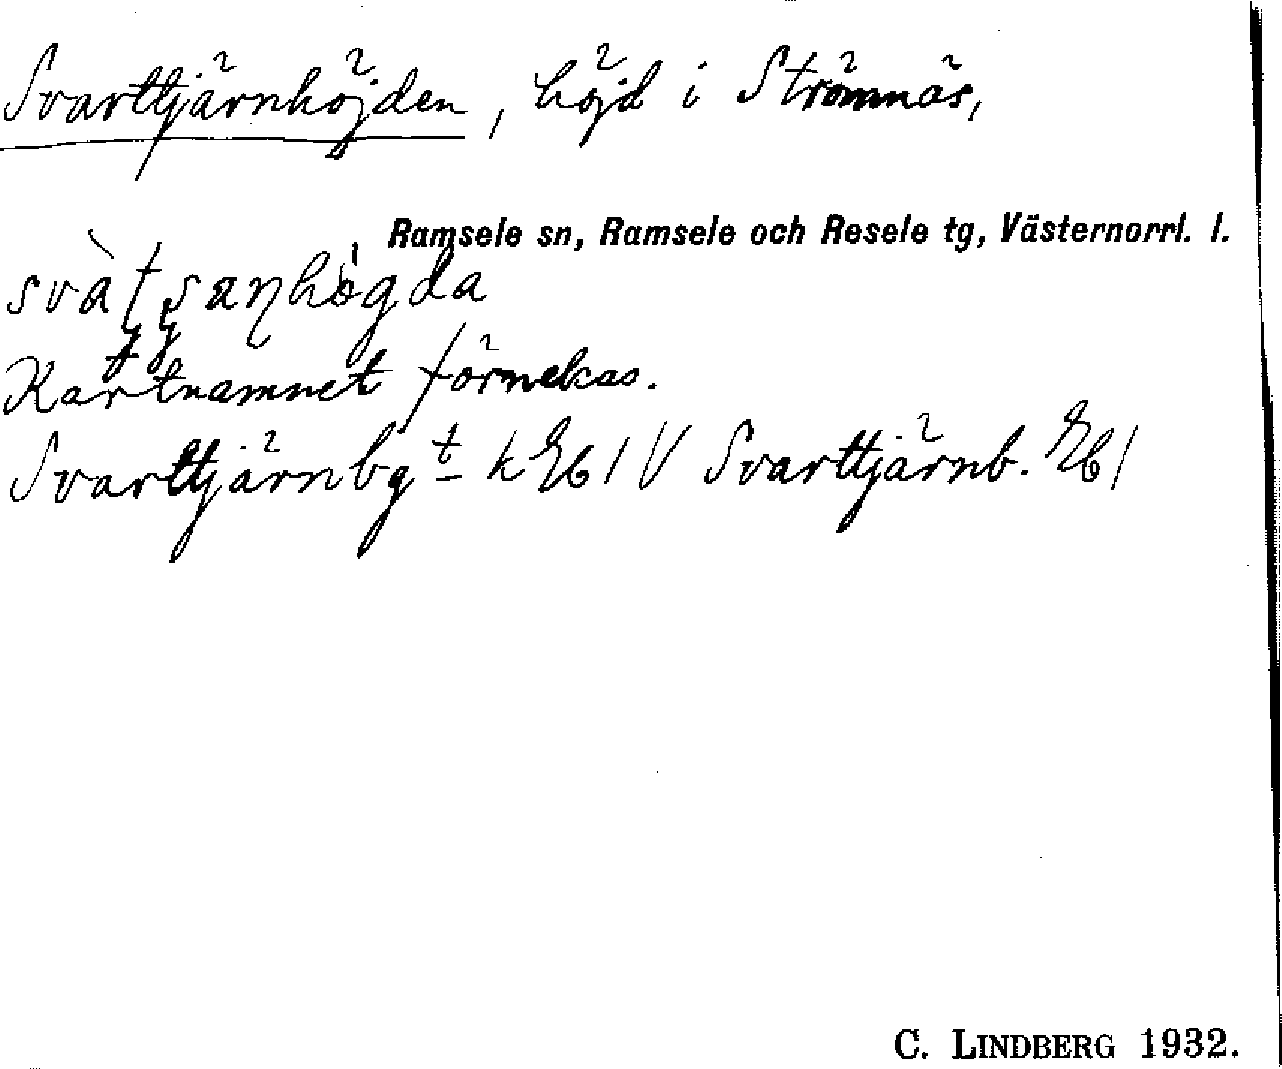 Svarttjärnhöjden, höjd i Strömnäs,
Ramsele sn, Ramsele och Resele tg, Västernorrl. l.
Kartnamnet förnekas.
Svarttjärnbgt k Eb1 V Svarttjärnb. Eb1
C. LINDBERG 1932.